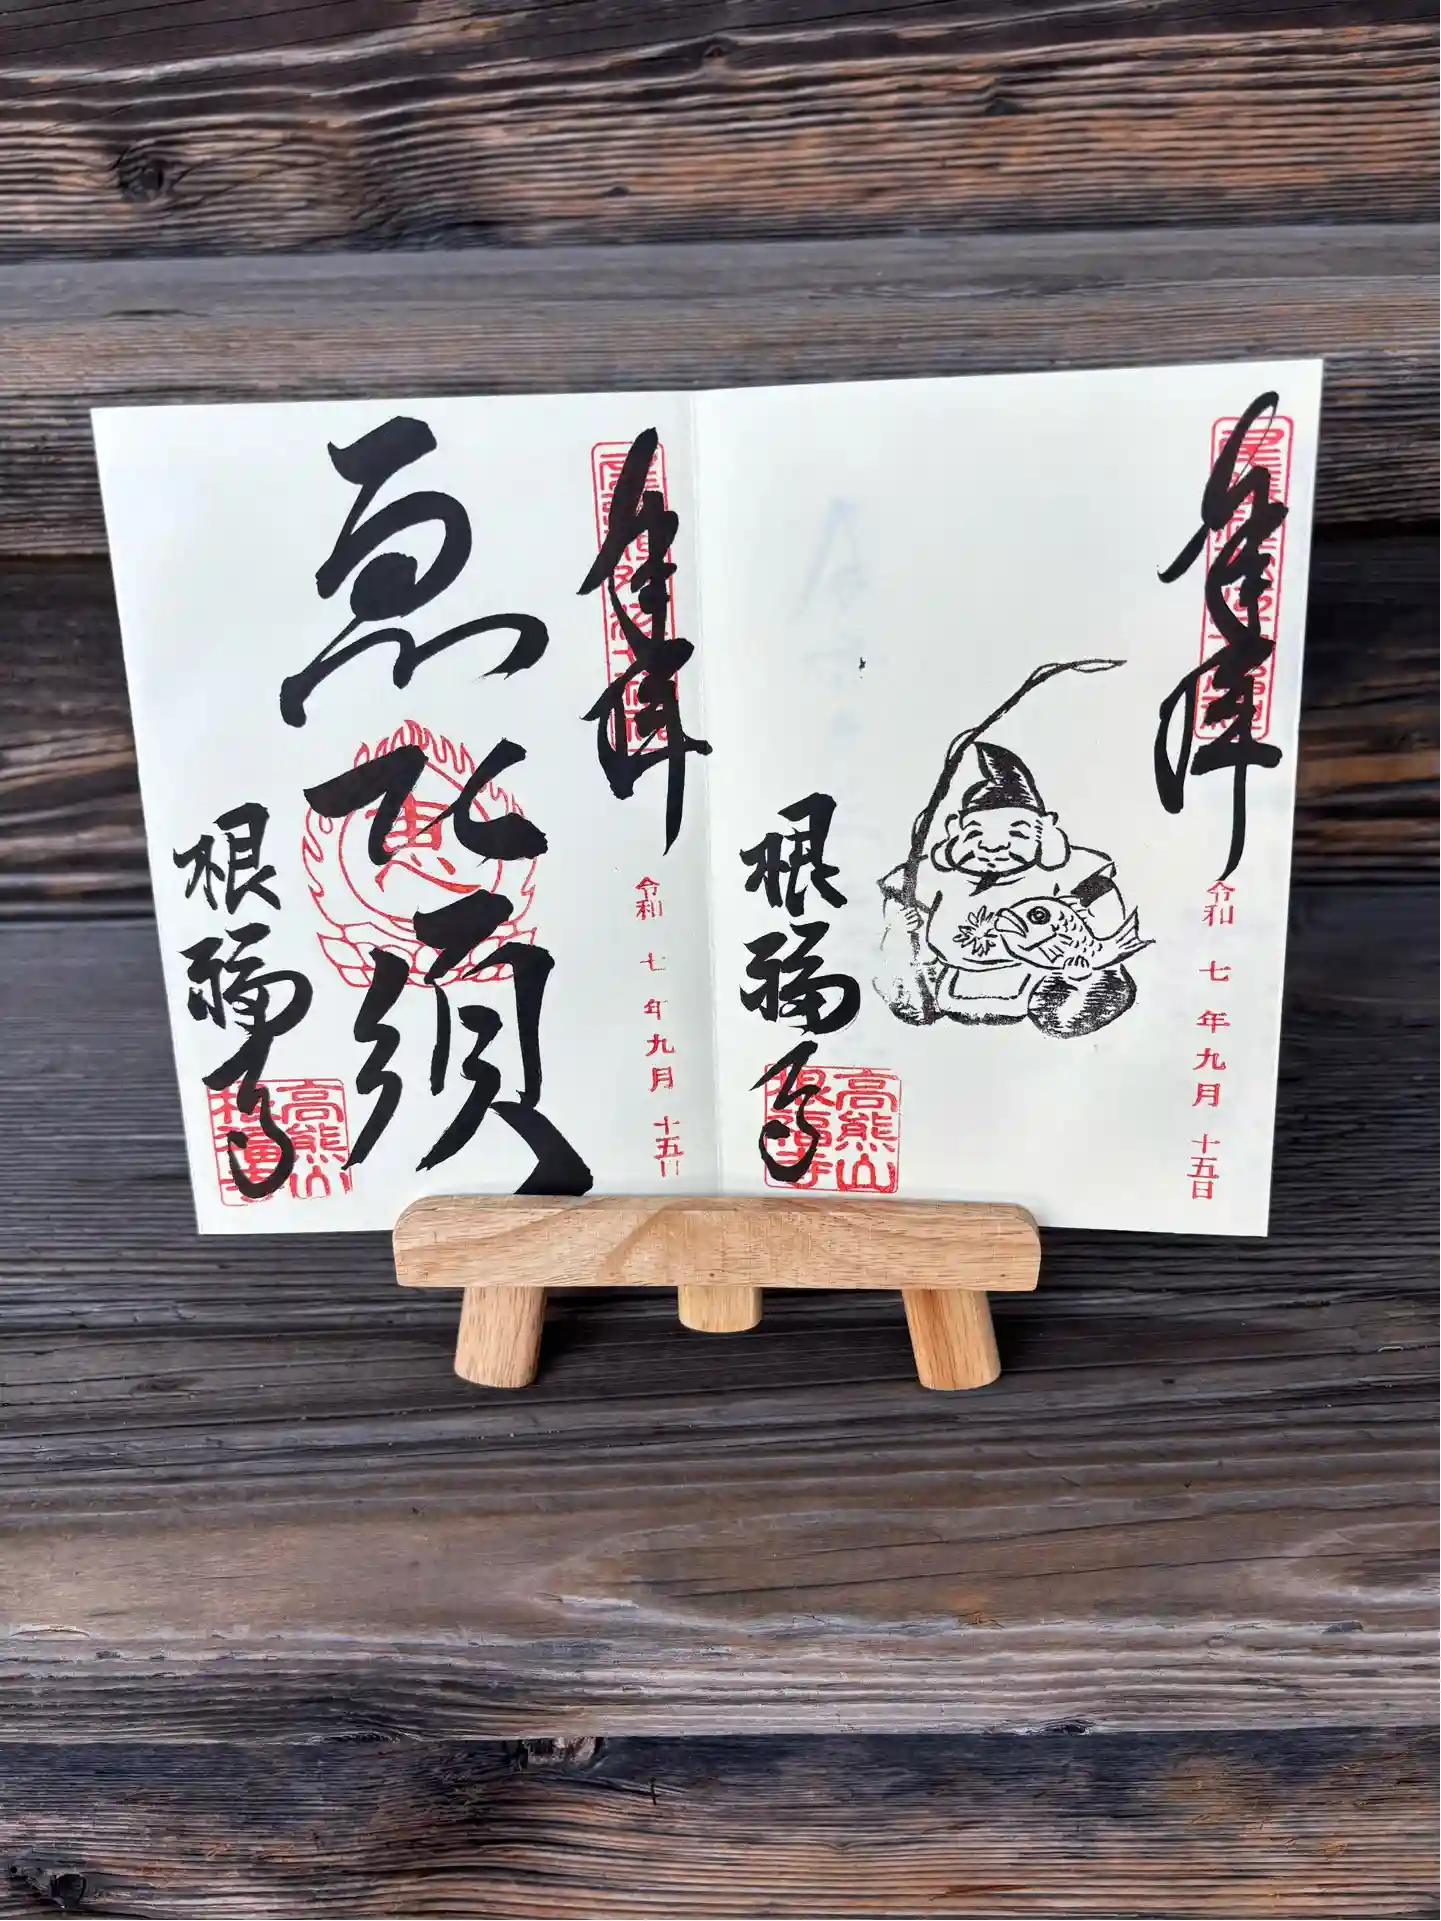 奉拝
令和七年九月十五日
根福寺
高熊山
根福寺
奉拝
令和七年九月十五日
恵比須
恵
根福寺
高熊山
根福寺